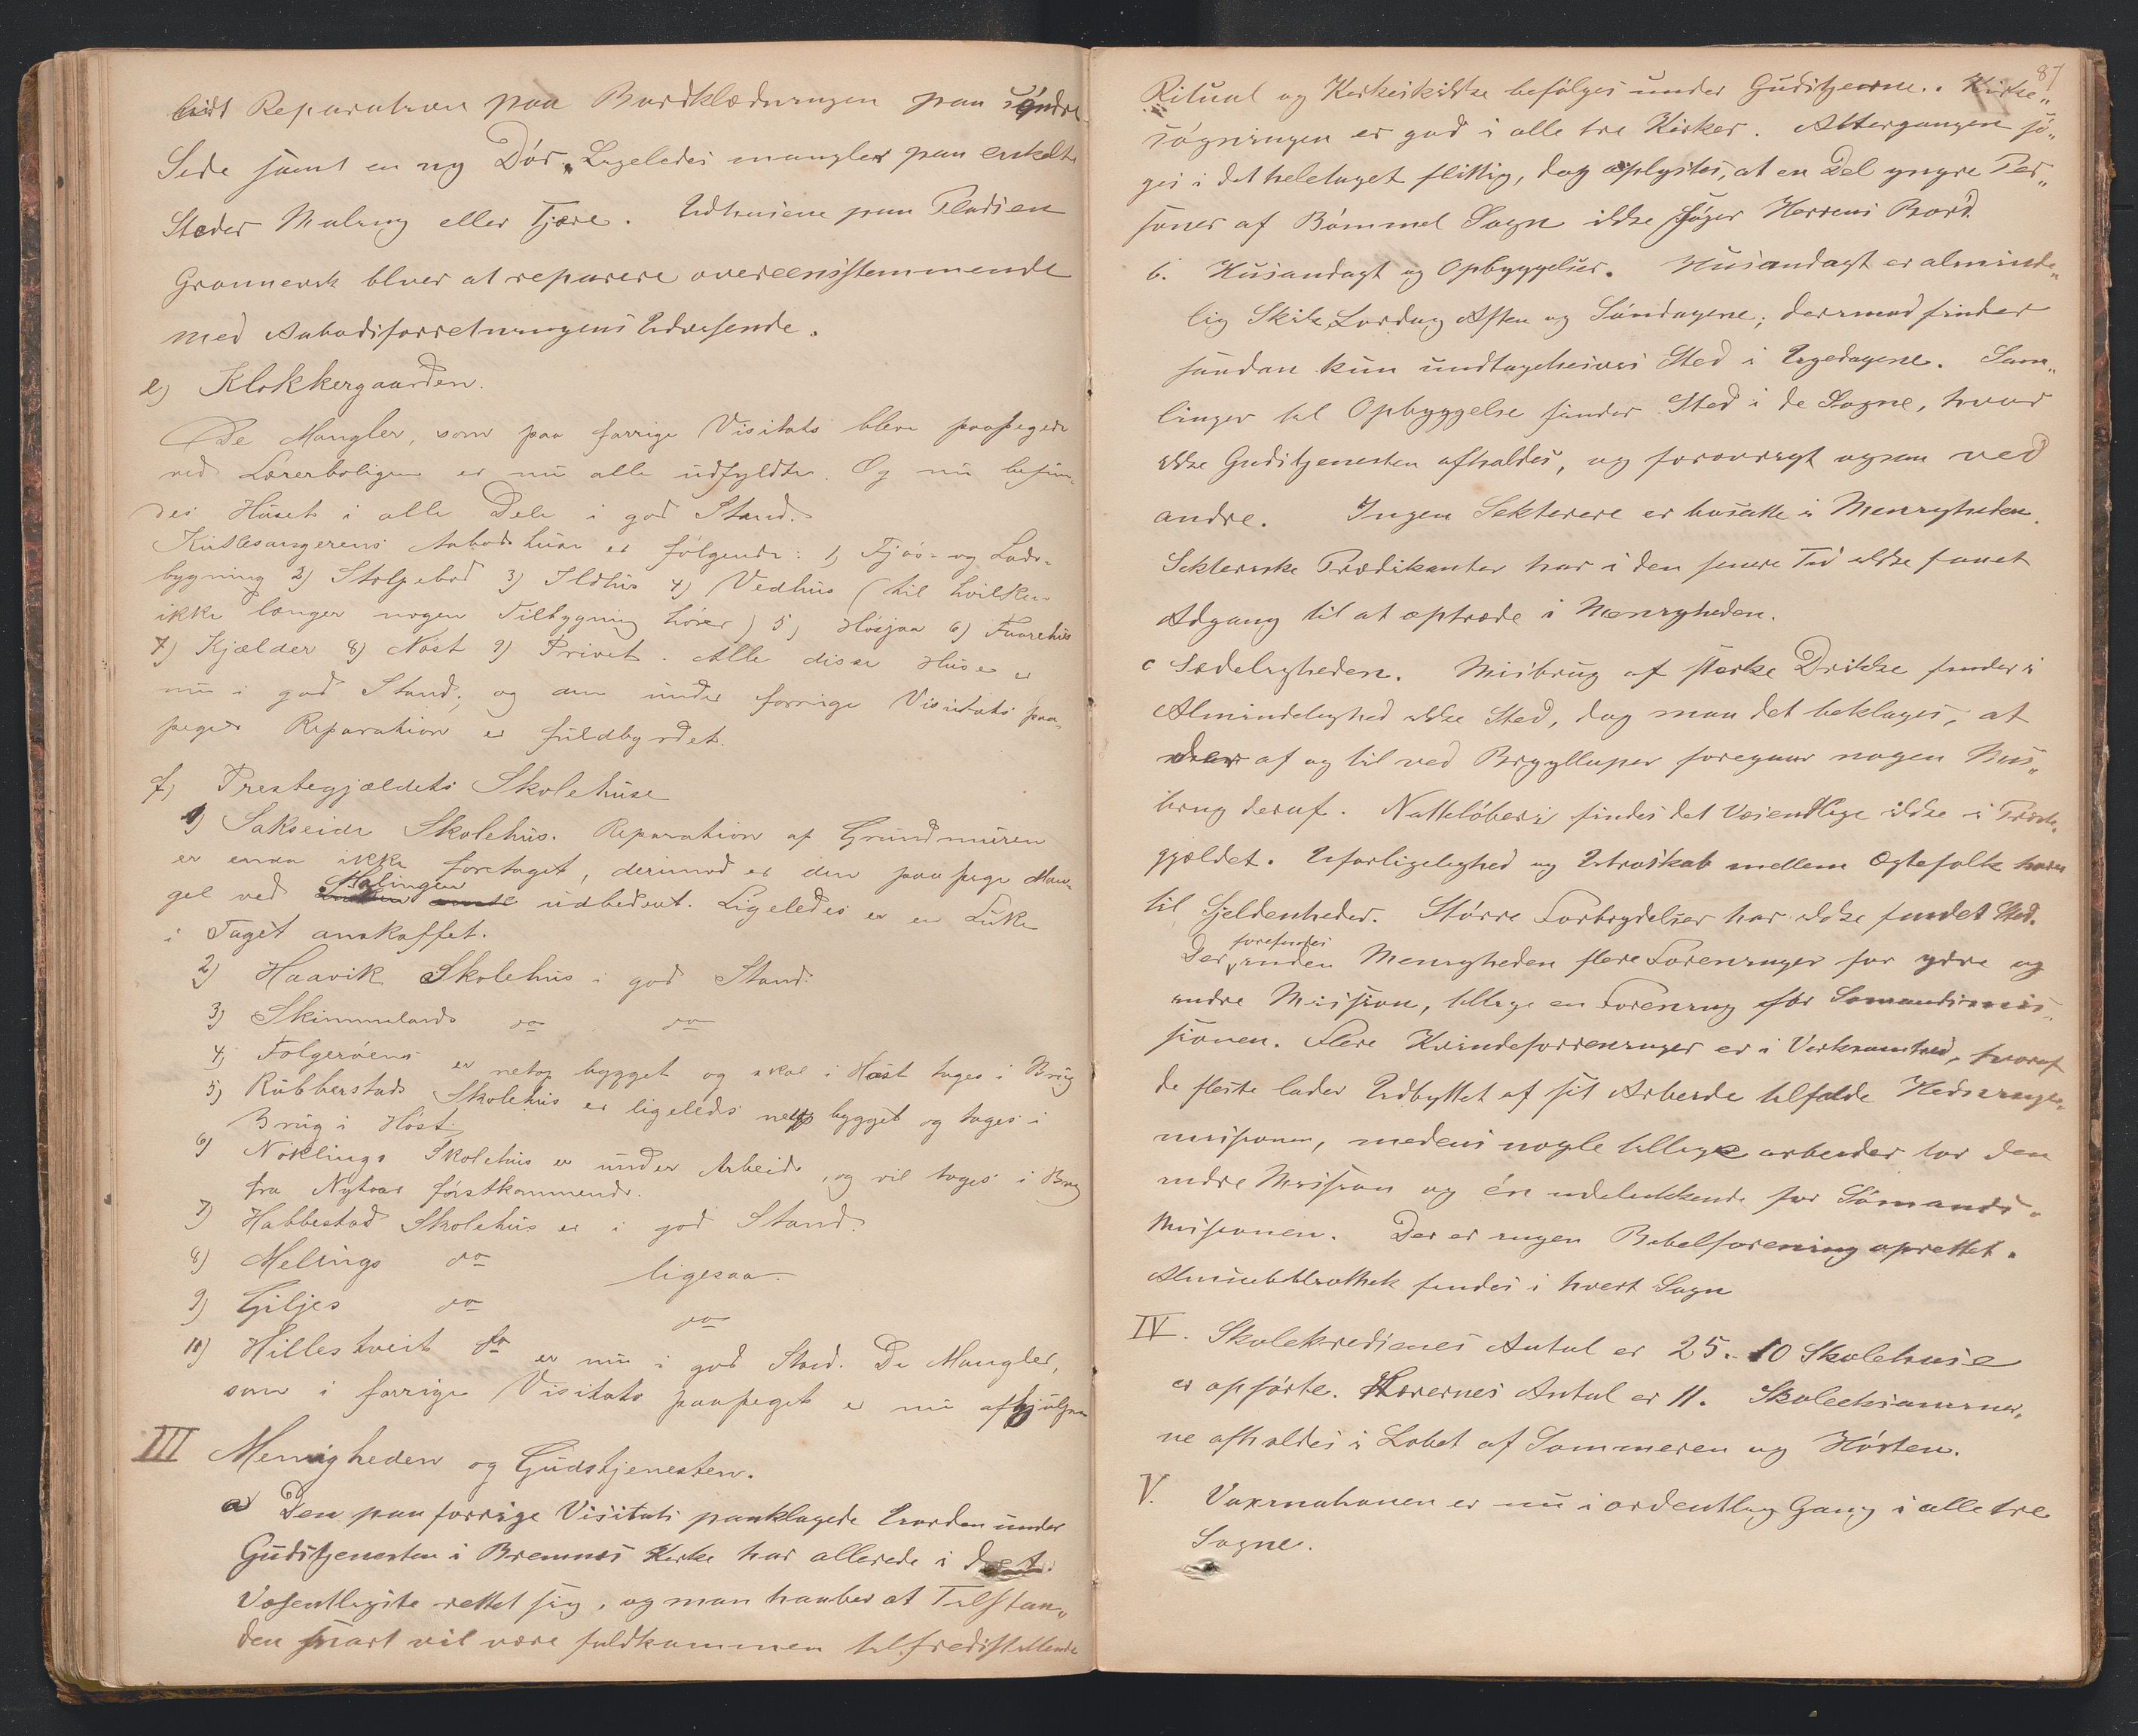 lidt Reparation paa Bordklædningen paa søndre
Side samt en ny Dør. Ligeledes mangler paa enkelte
Steder Maling eller Tjære. Udhusene paa Pladsen
Grønnevik bliver at reparere overeensstemmende
med Aabodsforretningens Udvisende.
e) Klokkergaarden.
De Mangler, som paa forrige Visitats bleve paapegede
ved Lærerboligen er nu alle udfyldte. Og nu befin-
des Huset i alle Dele i god Stand.
Kirkesangerens Aabodshuse er følgende: 1) Fjøs- og Lade-
bygning 2) Stolpebod 3) Ildhus 4) Vedhus (til hvilken
ikke længer nogen Tilbygning hører) 5) Høsjaa 6) Faarehus
7) Kjælder 8) Nøst 9) Privet. Alle disse Huse er
nu i god Stand, og den under forrige Visitats paa-
pegede Reparation er fuldbyrdet.
f) Prestegjældets Skolehuse
1) Sakseide Skolehus. Reparation af Grundmuren
er enda ikke foretaget, derimod er den paapege Man-
gel ved Malingen udbedret. Ligeledes er en Luke
i Taget anskaffet.
2) Haavik Skolehus i god Stand.
3) Skimmelands do do
4) Folgerøens er netop bygget og skal i Høst tages i Brug
5) Rubbestads Skolehus er ligeleds netop bygget og tages i
Brug i Høst.
6) Nøklings Skolehus er under Arbeide, og vil tages i Brug
fra Nytaar førstkommende.
7) Habbestad Skolehus er i god Stand.
8) Melings do ligesaa.
9) Giljes do do
10) Hillestveit do er nu i god Stand. De Mangler,
som i forrige Visitats paapeget er nu afhjulpne
III Menigheden og Gudstjenesten.
a) Den paa forrige Visitats paaklagede Uorden under
Gudstjenesten i Bremnes Kirke har allerede i det
Væsentligste rettet sig, og man haaber at Tilstan„
den snart vil være fuldkommen tilfredsstillende
87
Ritual og Kirkeskikke befølges under Gudstjenerne. Kirke„
søgningen er god i alle tre Kirker. Altergangen sø„
ges i det heletaget flittig, dog oplystes, at en Del yngre Per„
soner af Bømmel Sogn ikke søger Herrens Bord.
b. Husandagt og Opbyggelser. Husandagt er alminde„
lig Skik Lørdag Aften og Søndagene; derimod finder
saadan kun undtagelsesvis Sted i Ugedagene. Sam„
linger til Opbyggelse finder Sted i de Sogne, hvor
ikke Gudstjenesten afholdes, og forøvrigt ogsaa ved
andre. Ingen Sekterere er bosatte i Menigheden.
Sekteriske Prædikanter har i den senere Tid ikke faaet
Adgang til at optræde i Menigheden.
c Sædeligheden. Misbrug af stærke Drikke finder i
Almindelighed ikke Sted, dog maa det beklages, at
der af og til ved Brylluper foregaar nogen Mis„
brug deraf. Natteløberi findes det Væsentlige ikke i Præste„
gjældet. Uforligelighed og Utroskab mellem Ægtefolk hører
til Sjeldenheder. Større Forbrydelser har ikke fundet Sted.
Der forefindes inden Menigheden flere Foreninger for ydre og
indre Mission, tillige en Forening for Sømandsmis„
sionen. Flere Kvindeforeninger er i Virksomhed, hvoraf
de fleste lader Udbyttet af sit Arbeide tilfalde Hedninge„
missionen, medens nogle tillige arbeider for den
indre Mission og én udelukkende for Sømands-
Missionen. Der er ingen Bibelforening oprettet.
Almuebibliothek findes i hvert Sogn
IV. Skolekredsenes Antal er 25. 10 Skolehuse
er opførte. Lærernes Antal er 11. Skoleeksaminer„
ne afholdes i Løbet af Sommeren og Høsten.
V. Vaxinationen er nu i ordentlig Gang i alle tre
Sogne.